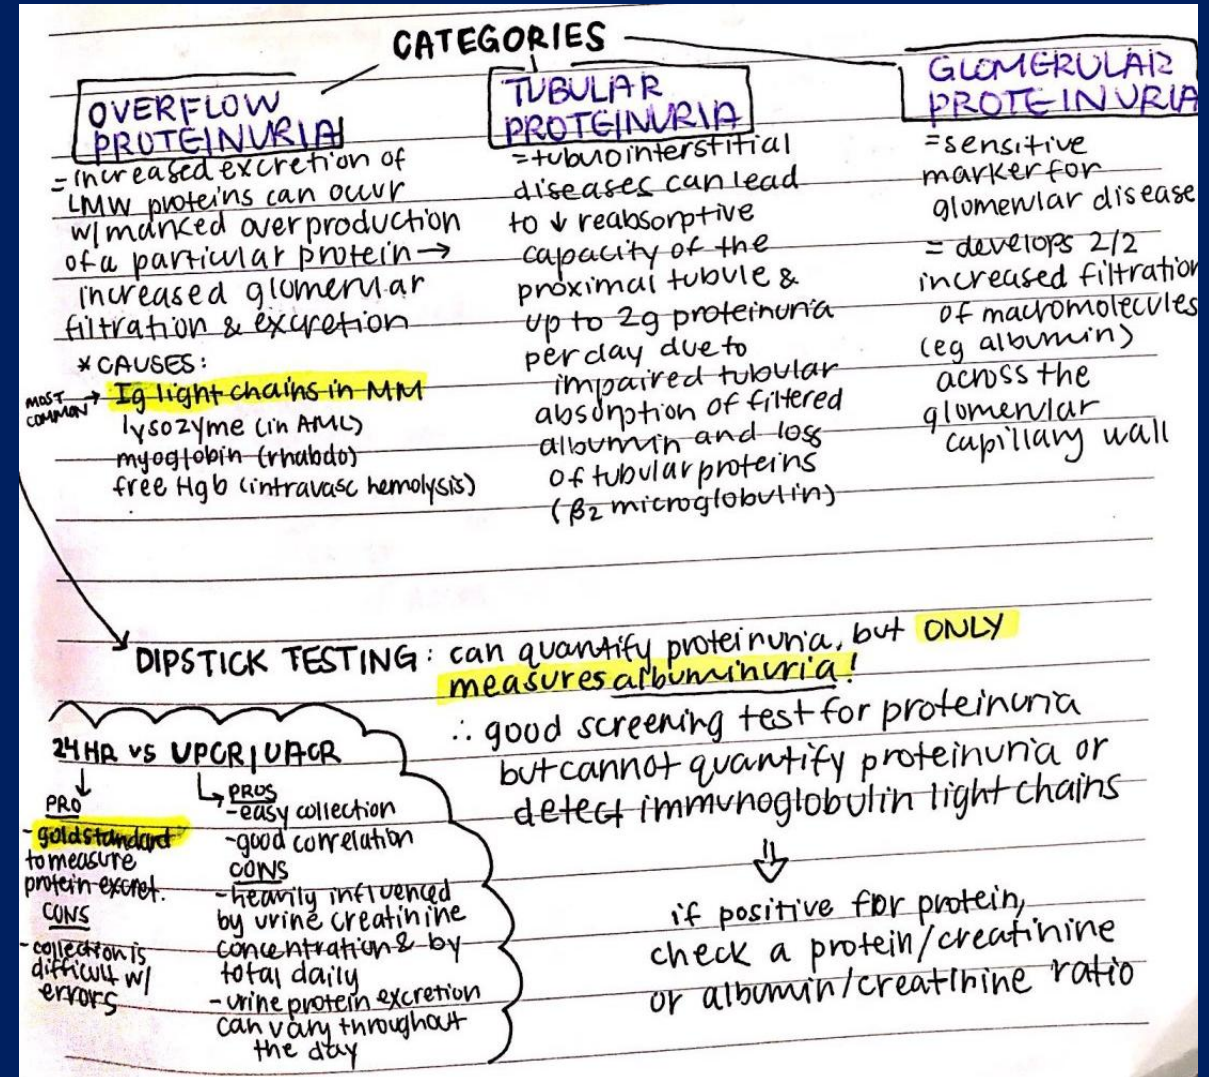 CATEGORIES
OVERFLOW
PROTEINURIA
= increased excretion of
LMW proteins can occur
w/ marked overproduction
of a particular protein →
increased glomerular
filtration & excretion
* CAUSES:
MOST COMMON → Ig light chains in MM
lysozyme (in AML)
myoglobin (rhabdo)
free Hgb (intravasc hemolysis)
TUBULAR
PROTEINURIA
= tubulointerstitial
diseases can lead
to ↓ reabsorptive
capacity of the
proximal tubule &
up to 2g proteinuria
per day due to
impaired tubular
absorption of filtered
albumin and loss
of tubular proteins
(β2 microglobulin)
GLOMERULAR
PROTEINURIA
= sensitive
marker for
glomerular disease
= develops 2/2
increased filtration
of macromolecules
(eg albumin)
across the
glomerular
capillary wall
DIPSTICK TESTING: can quantify proteinuria, but ONLY
measures albuminuria!
∴ good screening test for proteinuria
but cannot quantify proteinuria or
detect immunoglobulin light chains
⇓
if positive for protein,
check a protein/creatinine
or albumin/creatinine ratio
24HR vs UPCR|UACR
PRO
- gold standard
to measure
protein excret.
CONS
- collection is
difficult w/
errors
PROS
- easy collection
- good correlation
CONS
- heavily influenced
by urine creatinine
concentration & by
total daily
- urine protein excretion
can vary throughout
the day